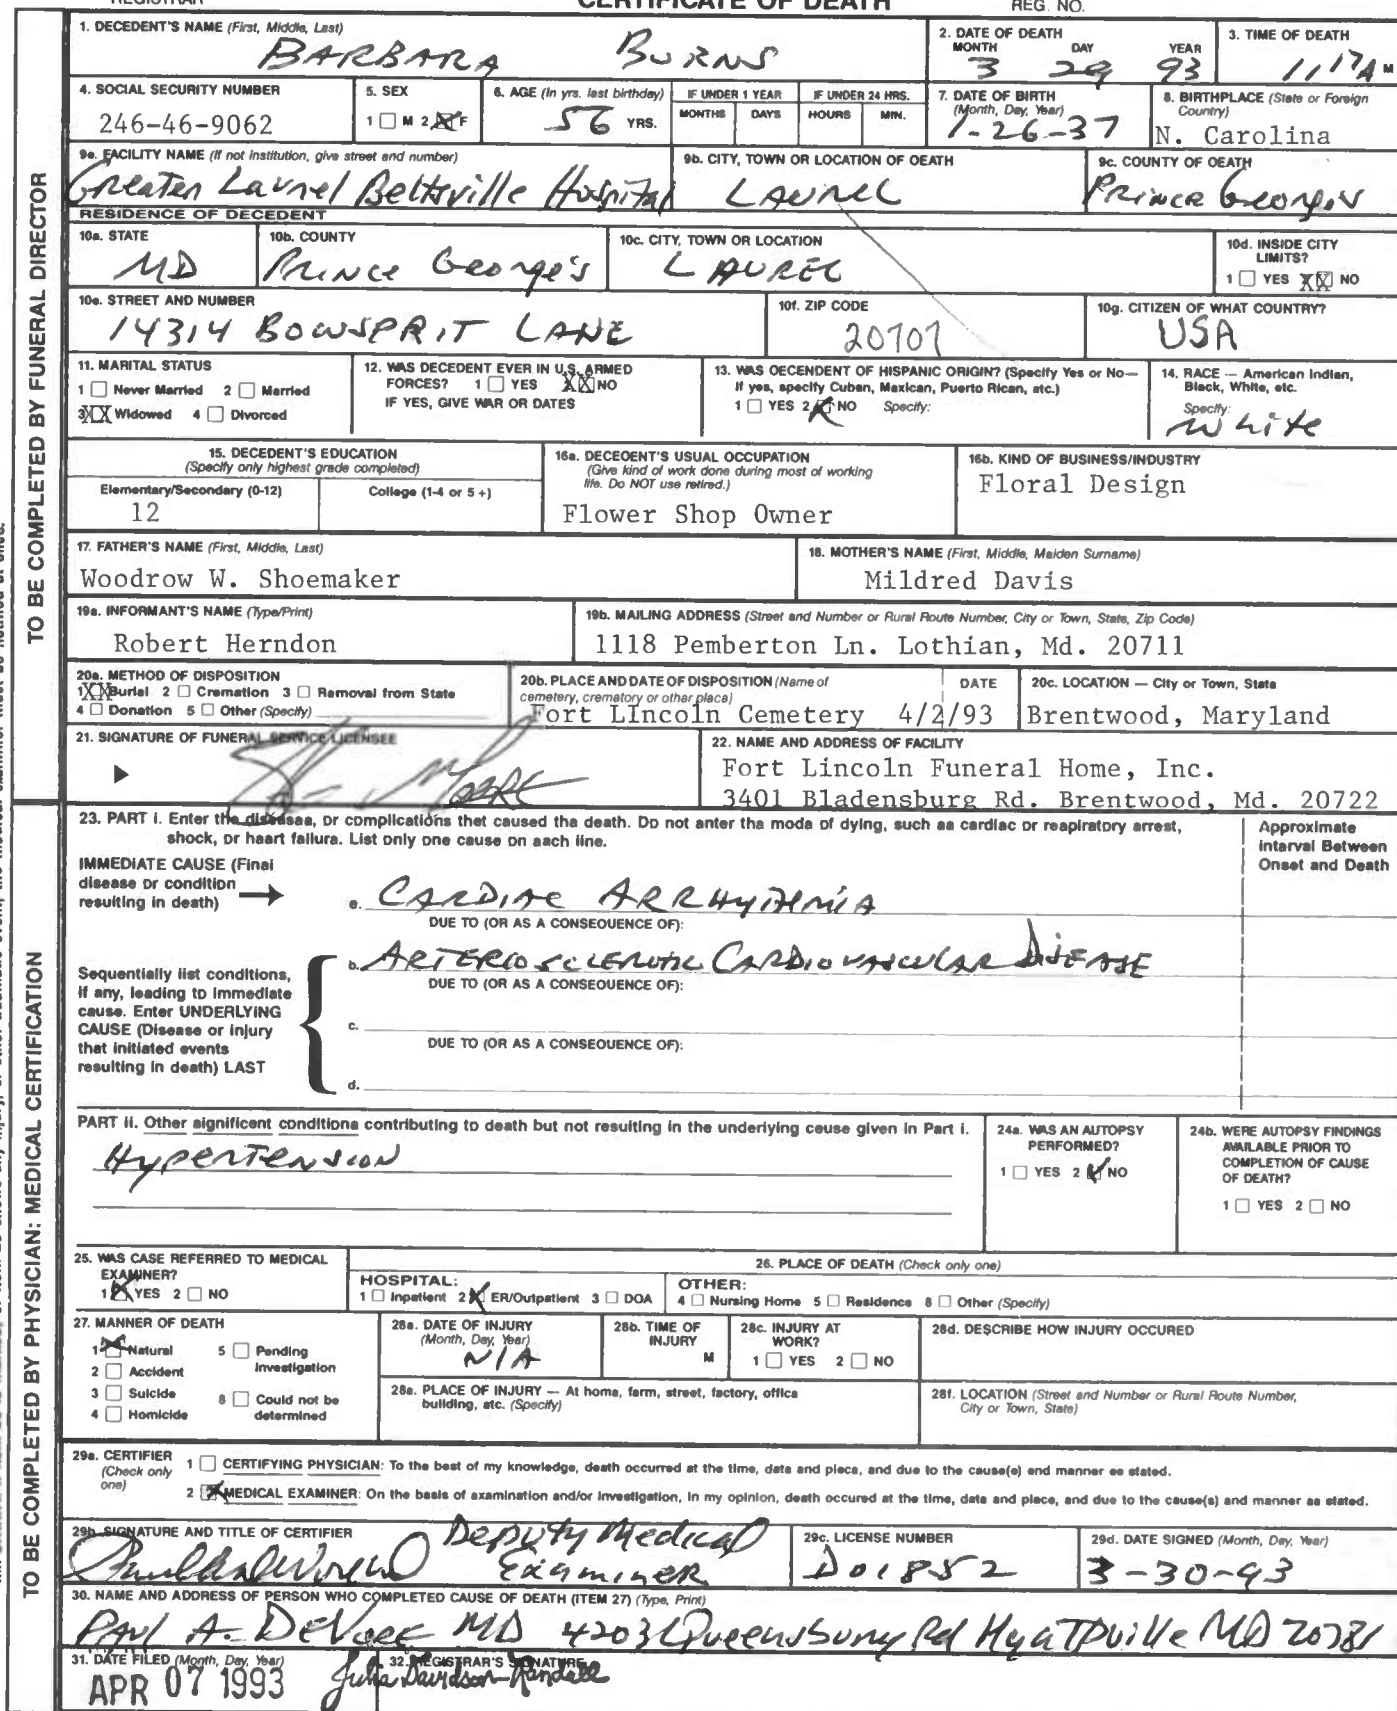 CERTIFICATE OF DEATH
REGISTRAR
REG. NO.
1. DECEDENT'S NAME (First, Middle, Last)
BARBARA BURNS
2. DATE OF DEATH
MONTH DAY YEAR
3 29 93
3. TIME OF DEATH
11 17A M
4. SOCIAL SECURITY NUMBER
246-46-9062
5. SEX
1 M 2 X F
6. AGE (In yrs. last birthday)
56 YRS.
IF UNDER 1 YEAR
MONTHS DAYS
IF UNDER 24 HRS.
HOURS MIN.
7. DATE OF BIRTH
(Month, Day, Year)
1-26-37
8. BIRTHPLACE (State or Foreign
Country)
N. Carolina
9a. FACILITY NAME (If not institution, give street and number)
Greater Laurel Beltsville Hospital
9b. CITY, TOWN OR LOCATION OF DEATH
LAUREL
9c. COUNTY OF DEATH
Prince George's
RESIDENCE OF DECEDENT
10a. STATE
MD
10b. COUNTY
Prince George's
10c. CITY, TOWN OR LOCATION
LAUREL
10d. INSIDE CITY
LIMITS?
1 YES XX NO
10e. STREET AND NUMBER
14314 BOWSPRIT LANE
10f. ZIP CODE
20707
10g. CITIZEN OF WHAT COUNTRY?
USA
11. MARITAL STATUS
1 Never Married 2 Married
3 XX Widowed 4 Divorced
12. WAS DECEDENT EVER IN U.S. ARMED
FORCES? 1 YES XX NO
IF YES, GIVE WAR OR DATES
13. WAS DECENDENT OF HISPANIC ORIGIN? (Specify Yes or No—
If yes, specify Cuban, Mexican, Puerto Rican, etc.)
1 YES 2 X NO Specify:
14. RACE — American Indian,
Black, White, etc.
Specify:
White
15. DECEDENT'S EDUCATION
(Specify only highest grade completed)
Elementary/Secondary (0-12)
College (1-4 or 5 +)
12
16a. DECEDENT'S USUAL OCCUPATION
(Give kind of work done during most of working
life. Do NOT use retired.)
Flower Shop Owner
16b. KIND OF BUSINESS/INDUSTRY
Floral Design
17. FATHER'S NAME (First, Middle, Last)
Woodrow W. Shoemaker
18. MOTHER'S NAME (First, Middle, Maiden Surname)
Mildred Davis
19a. INFORMANT'S NAME (Type/Print)
Robert Herndon
19b. MAILING ADDRESS (Street and Number or Rural Route Number, City or Town, State, Zip Code)
1118 Pemberton Ln. Lothian, Md. 20711
20a. METHOD OF DISPOSITION
1 XX Burial 2 Cremation 3 Removal from State
4 Donation 5 Other (Specify)
20b. PLACE AND DATE OF DISPOSITION (Name of
cemetery, crematory or other place)
DATE
Fort LIncoln Cemetery 4/2/93
20c. LOCATION — City or Town, State
Brentwood, Maryland
21. SIGNATURE OF FUNERAL SERVICE LICENSEE
22. NAME AND ADDRESS OF FACILITY
Fort Lincoln Funeral Home, Inc.
3401 Bladensburg Rd. Brentwood, Md. 20722
TO BE COMPLETED BY FUNERAL DIRECTOR
23. PART I. Enter the diseases, or complications that caused the death. Do not enter the mode of dying, such as cardiac or respiratory arrest,
shock, or heart failure. List only one cause on each line.
Approximate
Interval Between
Onset and Death
IMMEDIATE CAUSE (Final
disease or condition
resulting in death)
a. CARDIAC ARRHYTHMIA
DUE TO (OR AS A CONSEQUENCE OF):
Sequentially list conditions,
if any, leading to immediate
cause. Enter UNDERLYING
CAUSE (Disease or injury
that initiated events
resulting in death) LAST
b. ARTERIOSCLEROTIC CARDIOVASCULAR DISEASE
DUE TO (OR AS A CONSEQUENCE OF):
c.
DUE TO (OR AS A CONSEQUENCE OF):
d.
PART II. Other significant conditions contributing to death but not resulting in the underlying cause given in Part I.
Hypertension
24a. WAS AN AUTOPSY
PERFORMED?
1 YES 2 NO
24b. WERE AUTOPSY FINDINGS
AVAILABLE PRIOR TO
COMPLETION OF CAUSE
OF DEATH?
1 YES 2 NO
25. WAS CASE REFERRED TO MEDICAL
EXAMINER?
1 X YES 2 NO
26. PLACE OF DEATH (Check only one)
HOSPITAL:
1 Inpatient 2 X ER/Outpatient 3 DOA
OTHER:
4 Nursing Home 5 Residence 6 Other (Specify)
27. MANNER OF DEATH
1 X Natural 5 Pending
Investigation
2 Accident
3 Suicide 6 Could not be
determined
4 Homicide
28a. DATE OF INJURY
(Month, Day, Year)
N/A
28b. TIME OF
INJURY
M
28c. INJURY AT
WORK?
1 YES 2 NO
28d. DESCRIBE HOW INJURY OCCURED
28e. PLACE OF INJURY — At home, farm, street, factory, office
building, etc. (Specify)
28f. LOCATION (Street and Number or Rural Route Number,
City or Town, State)
29a. CERTIFIER
(Check only
one)
1 CERTIFYING PHYSICIAN: To the best of my knowledge, death occurred at the time, date and place, and due to the cause(s) and manner as stated.
2 X MEDICAL EXAMINER: On the basis of examination and/or investigation, in my opinion, death occured at the time, date and place, and due to the cause(s) and manner as stated.
29b. SIGNATURE AND TITLE OF CERTIFIER
Deputy Medical
Examiner
29c. LICENSE NUMBER
D01852
29d. DATE SIGNED (Month, Day, Year)
3-30-93
30. NAME AND ADDRESS OF PERSON WHO COMPLETED CAUSE OF DEATH (ITEM 27) (Type, Print)
PAUL A. DeVore MD 4203 Queensbury Rd Hyattsville MD 20781
31. DATE FILED (Month, Day, Year)
APR 07 1993
32. REGISTRAR'S SIGNATURE
Julia Davidson-Randall
TO BE COMPLETED BY PHYSICIAN: MEDICAL CERTIFICATION